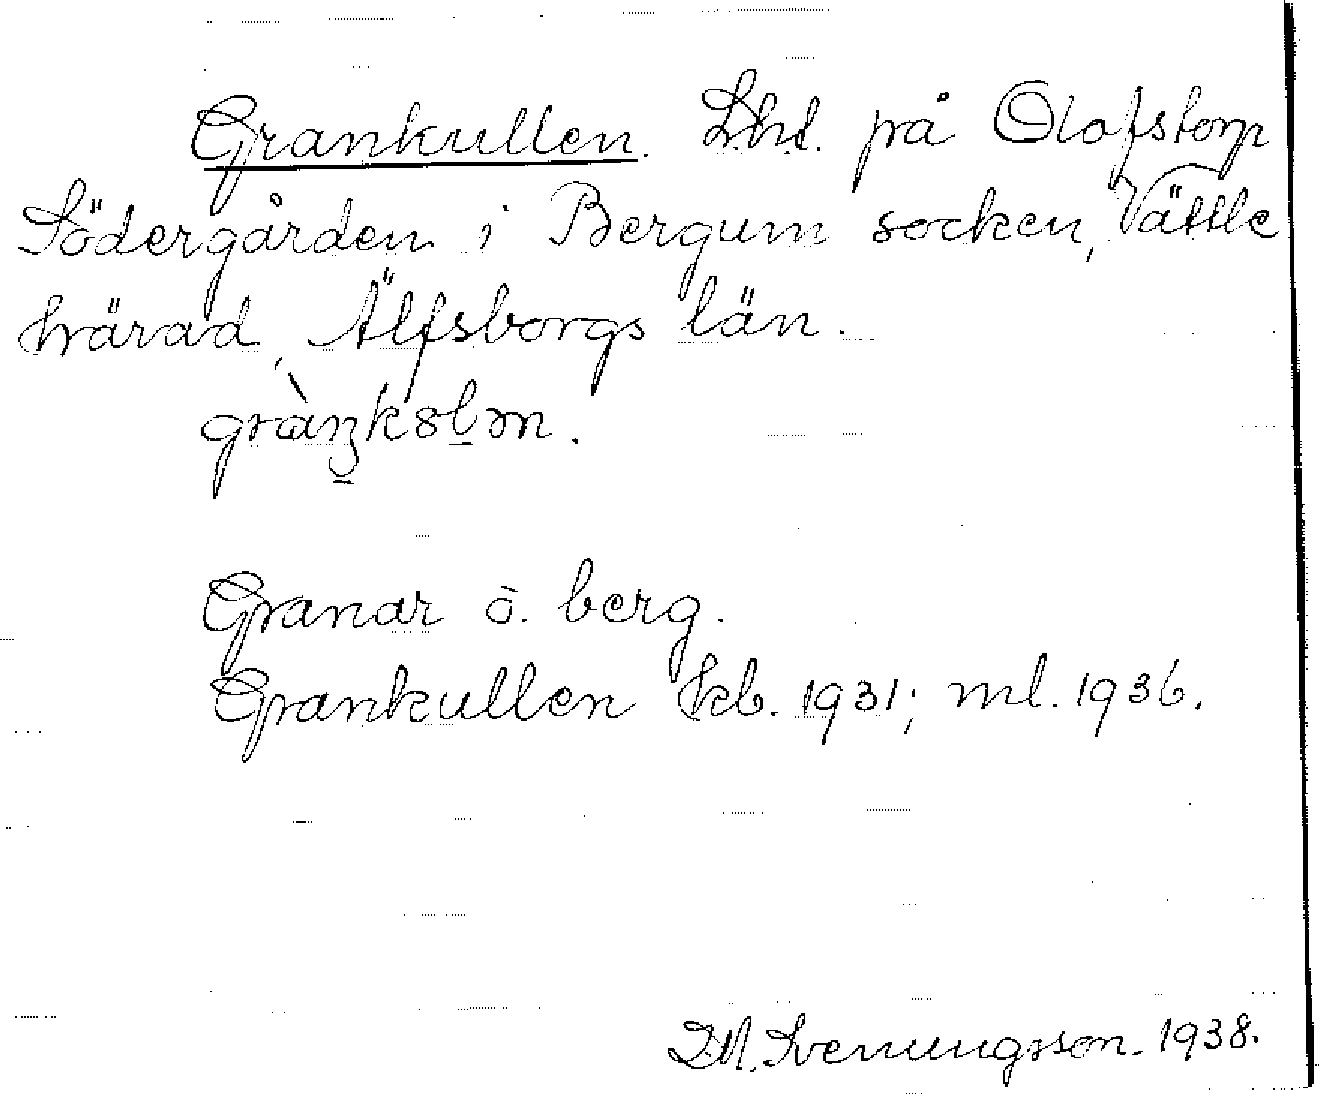 Grankullen. Lht. på Olofstorp
Södergården i Bergum socken, Vättle
härad, Älfsborgs län.
Granar o. berg.
Grankullen kb. 1931; ml. 1936.
D.M. Svenungsson. 1938.